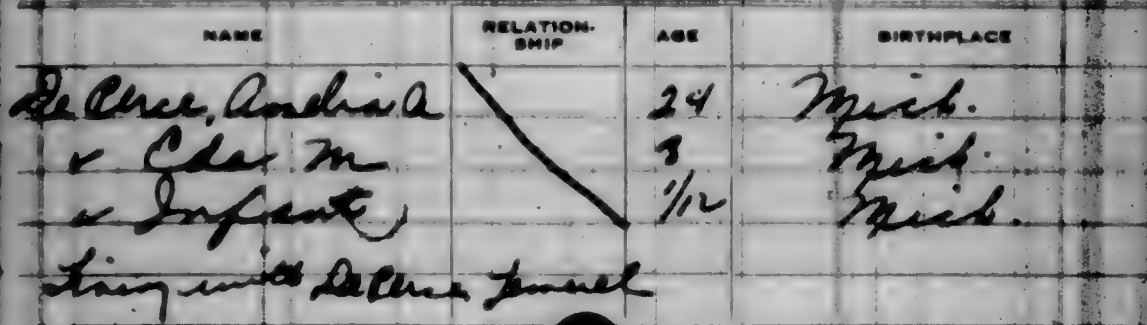 NAME RELATION-SHIP AGE BIRTHPLACE
De Perce, Amelia A 24 Mich.
" Eda M 3 Mich.
" Infant 1/12 Mich.
Living with De Perce, Lemuel